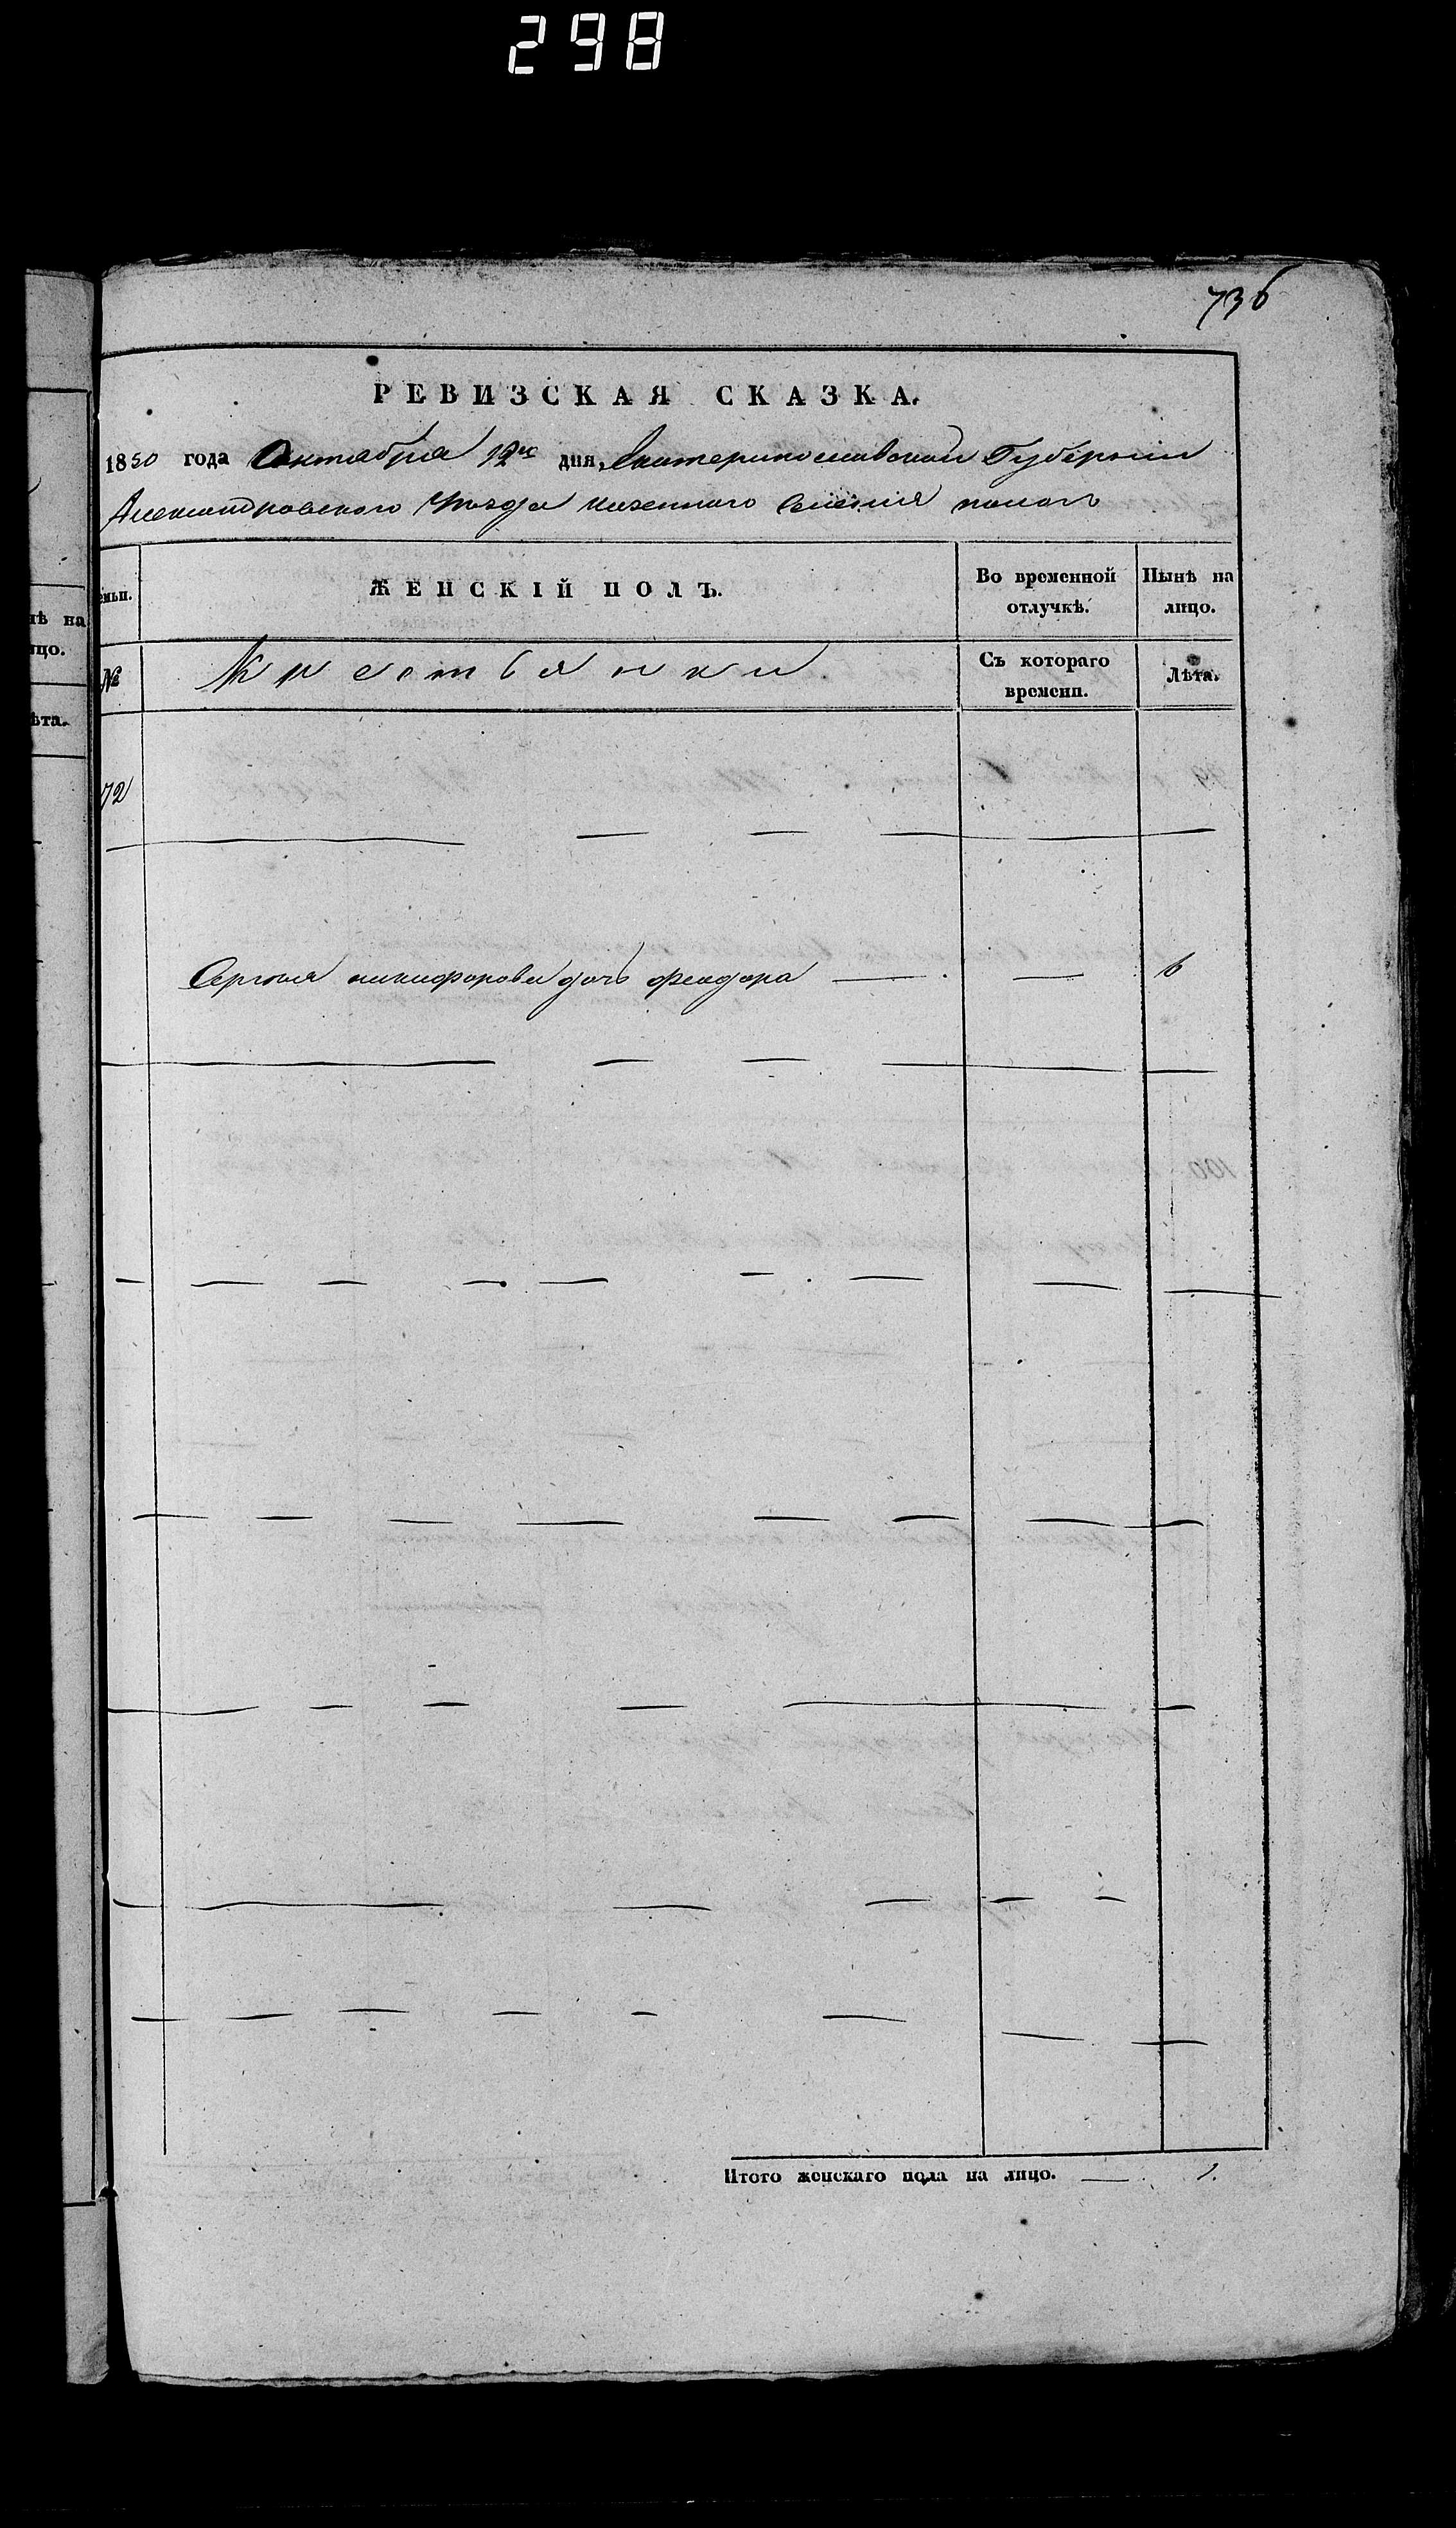 298
736
РЕВИЗСКАЯ СКАЗКА.
1850 года Октября 12го дня, Екатеринославской Губернии
Александровского Уезда казенного Селения
емьи. ЖЕНСКІЙ ПОЛЪ. Во временной отлучкѣ. Нынѣ на лицо.
№ Крестьянки Съ котораго времени. Лѣта.
нѣ на
цо.
ѣта.
72
Сергия никифорова дочь феодора — — 6
Итого женскаго пола на лицо. — 1.